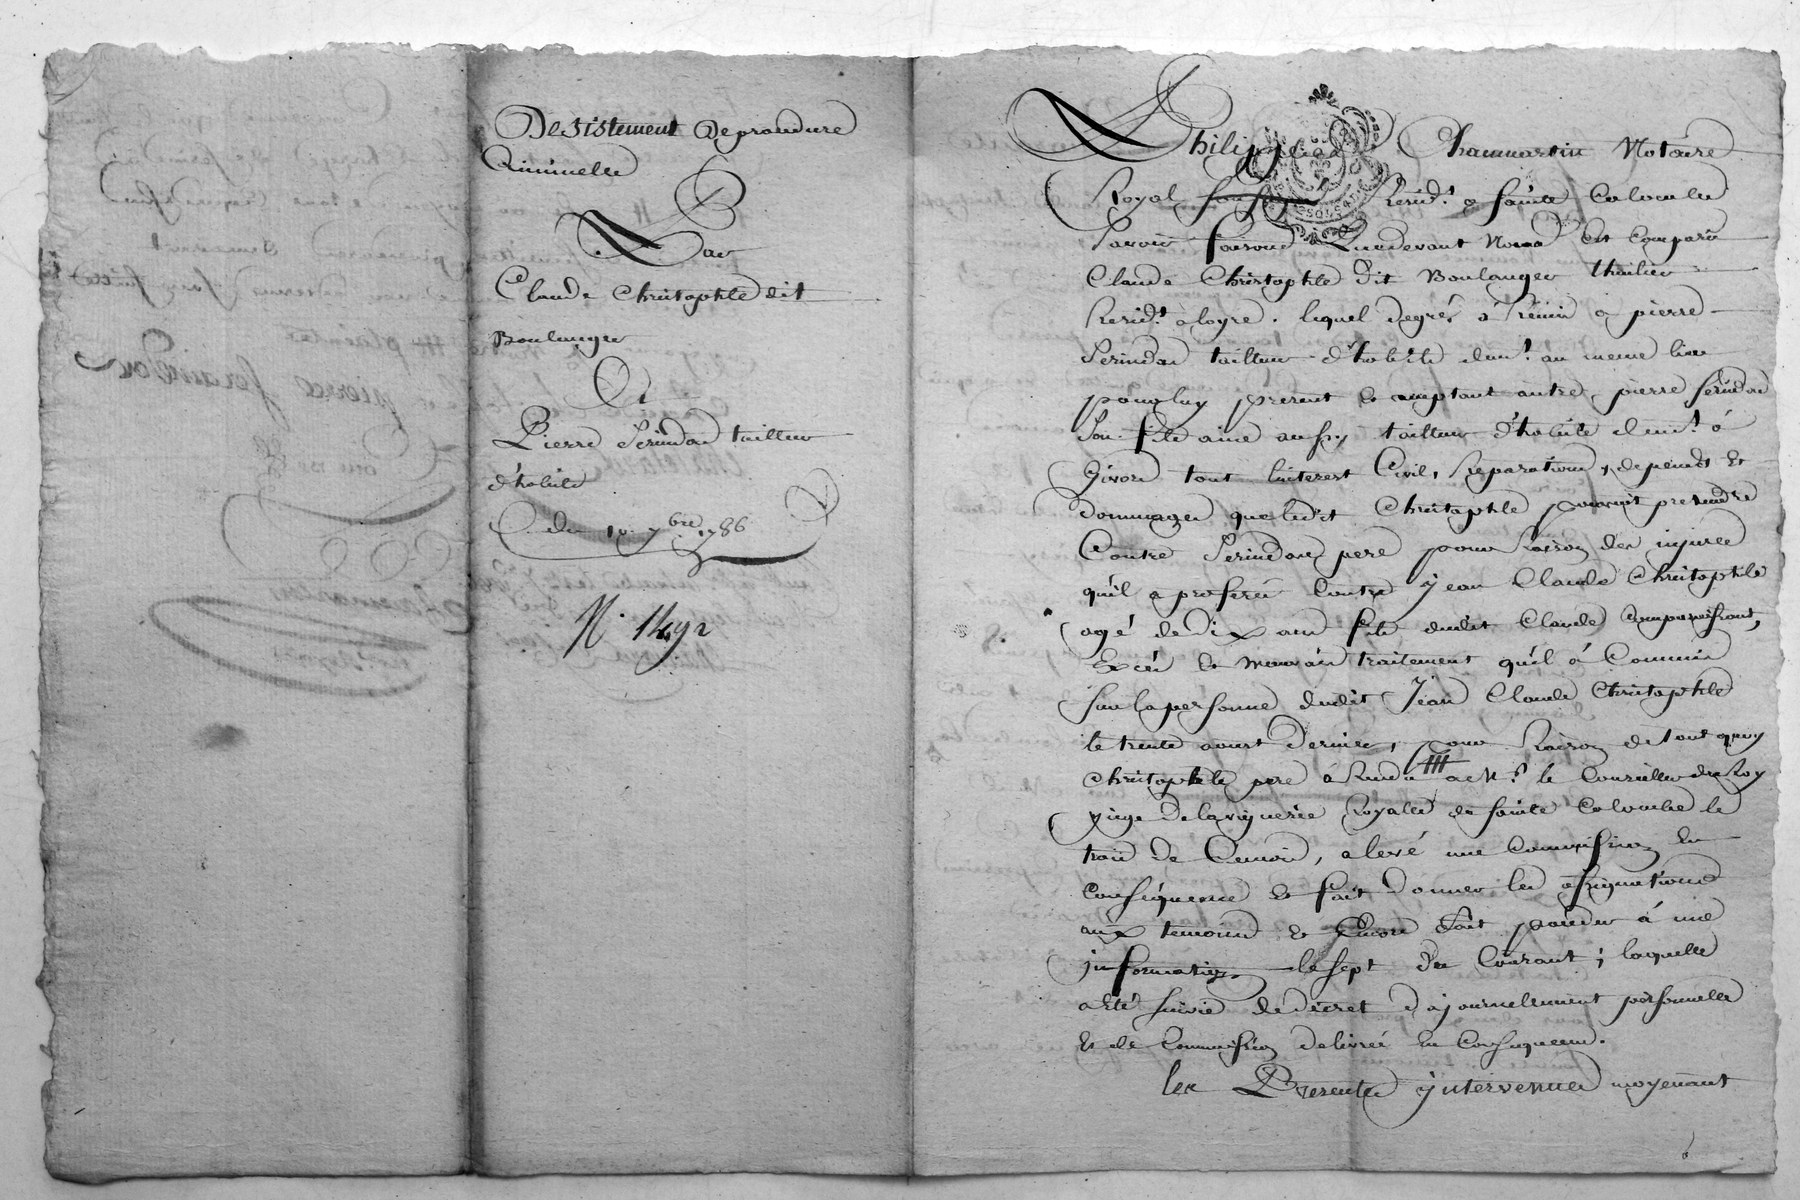 Desistement de procedure
Criminelle
Par
Claude Christophle dit
Boulanger
A
Pierre Serindon tailleur
d'habits
du 10 7bre 1786
N. 1492
Philippe Chammartin Notaire
Royal soussigné Resid.t a sainte Colombe
Savoir faisons que devant nous Est Comparu
Claude Christophle dit Boulanger thuilier
Resid.t a loyre. lequel degrés à Remis a pierre
Serindon tailleur d'habits dem.t au meme lieu
pour luy present et acceptant autre pierre serindon
son fils ainé aussy tailleur d'habits dem.t à
Givors tout linterest Civil, Reparations, depends et
dommages que ledit Christophle pouvoit pretendre
Contre Serindon pere pour Raison des injures
qu'il a proferé Contre jean Claude Christophle
agé de dix ans fils dudit Claude Comparoissant,
Excés et mauvais traitement qu'il à Commis
sur la personne dudit Jean Claude Christophle
le trente aoust dernier, pour Raison de tout quoy
Christophle pere à Rendu a M.r le Conseiller du Roy
juge de la viguerie Royalle de sainte Colombe le
trois de Ce mois, a levé une Commission En
Conséquence et fait donner les assignations
aux temoins et Encore fait proceder à une
information le sept du Courant; laquelle
a Eté suivie de décret d'ajournellement personnelle
Et de Commission delivrée En Consequence.
les Presentes intervenues moyenant